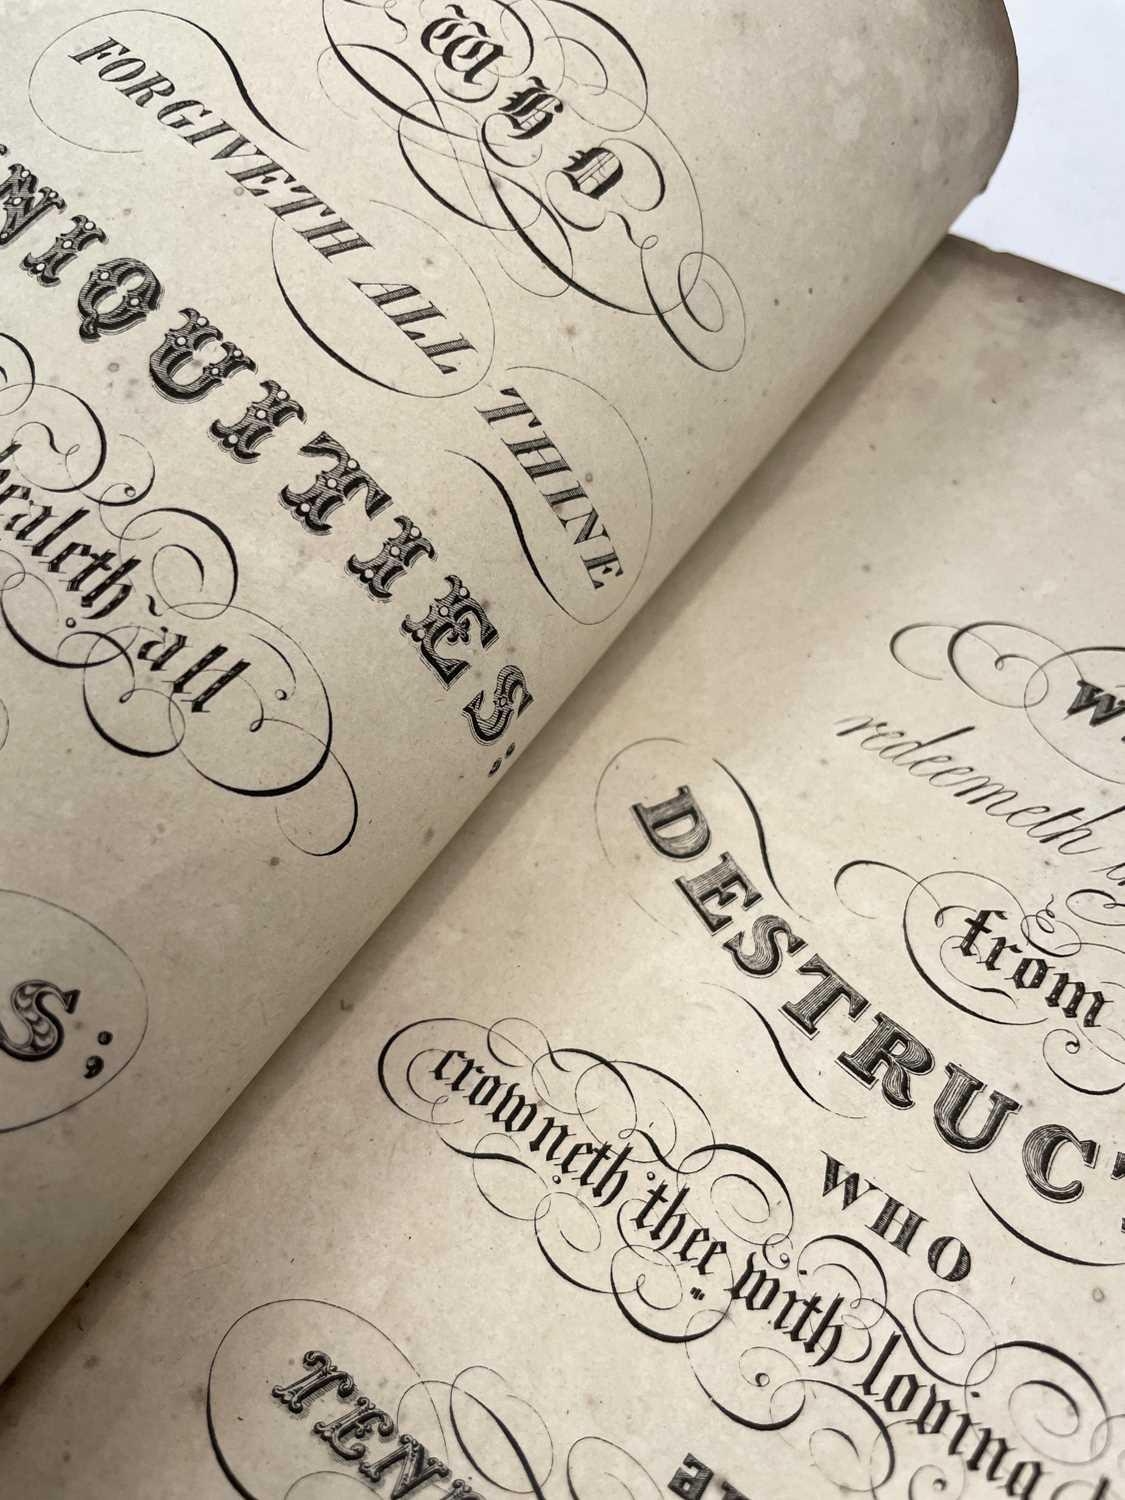 Who
FORGIVETH ALL THINE
NIQUITIES:
healeth all
S;
redeemeth
from
DESTRUCT
WHO
crowneth thee with loving
TEN